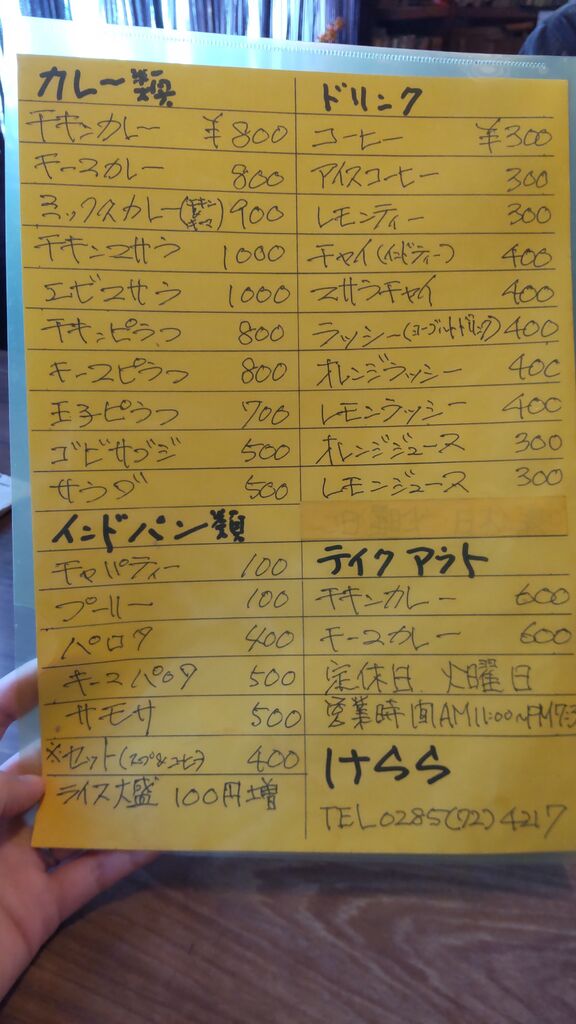 カレー類
チキンカレー ¥800
キーマカレー 800
ミックスカレー(チキン&キーマ) 900
チキンマサラ 1000
エビマサラ 1000
チキンピラフ 800
キーマピラフ 800
玉子ピラフ 700
ゴビサブジ 500
サラダ 500
インドパン類
チャパティー 100
プーリー 100
パロタ 400
キーマパロタ 500
サモサ 500
※セット(スープ&コーヒー) 400
ライス大盛 100円増
ドリンク
コーヒー ¥300
アイスコーヒー 300
レモンティー 300
チャイ(インドティー) 400
マサラチャイ 400
ラッシー(ヨーグルトドリンク) 400
オレンジラッシー 400
レモンラッシー 400
オレンジジュース 300
レモンジュース 300
テイクアウト
チキンカレー 600
キーマカレー 600
定休日 火曜日
営業時間AM11:00~PM7:3
けらら
TEL0285(72)4217